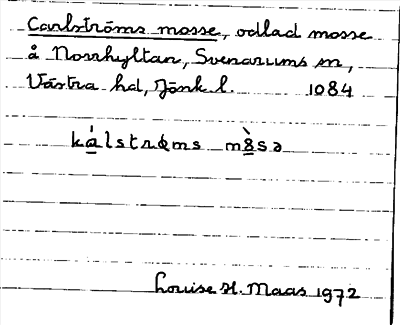 Carlströms mosse, odlad mosse
å Norrhyltan, Svenarums sn,
Västra hd, Jönk l. 1084
kálstrøms mòsə
Louise H. Maas 1972